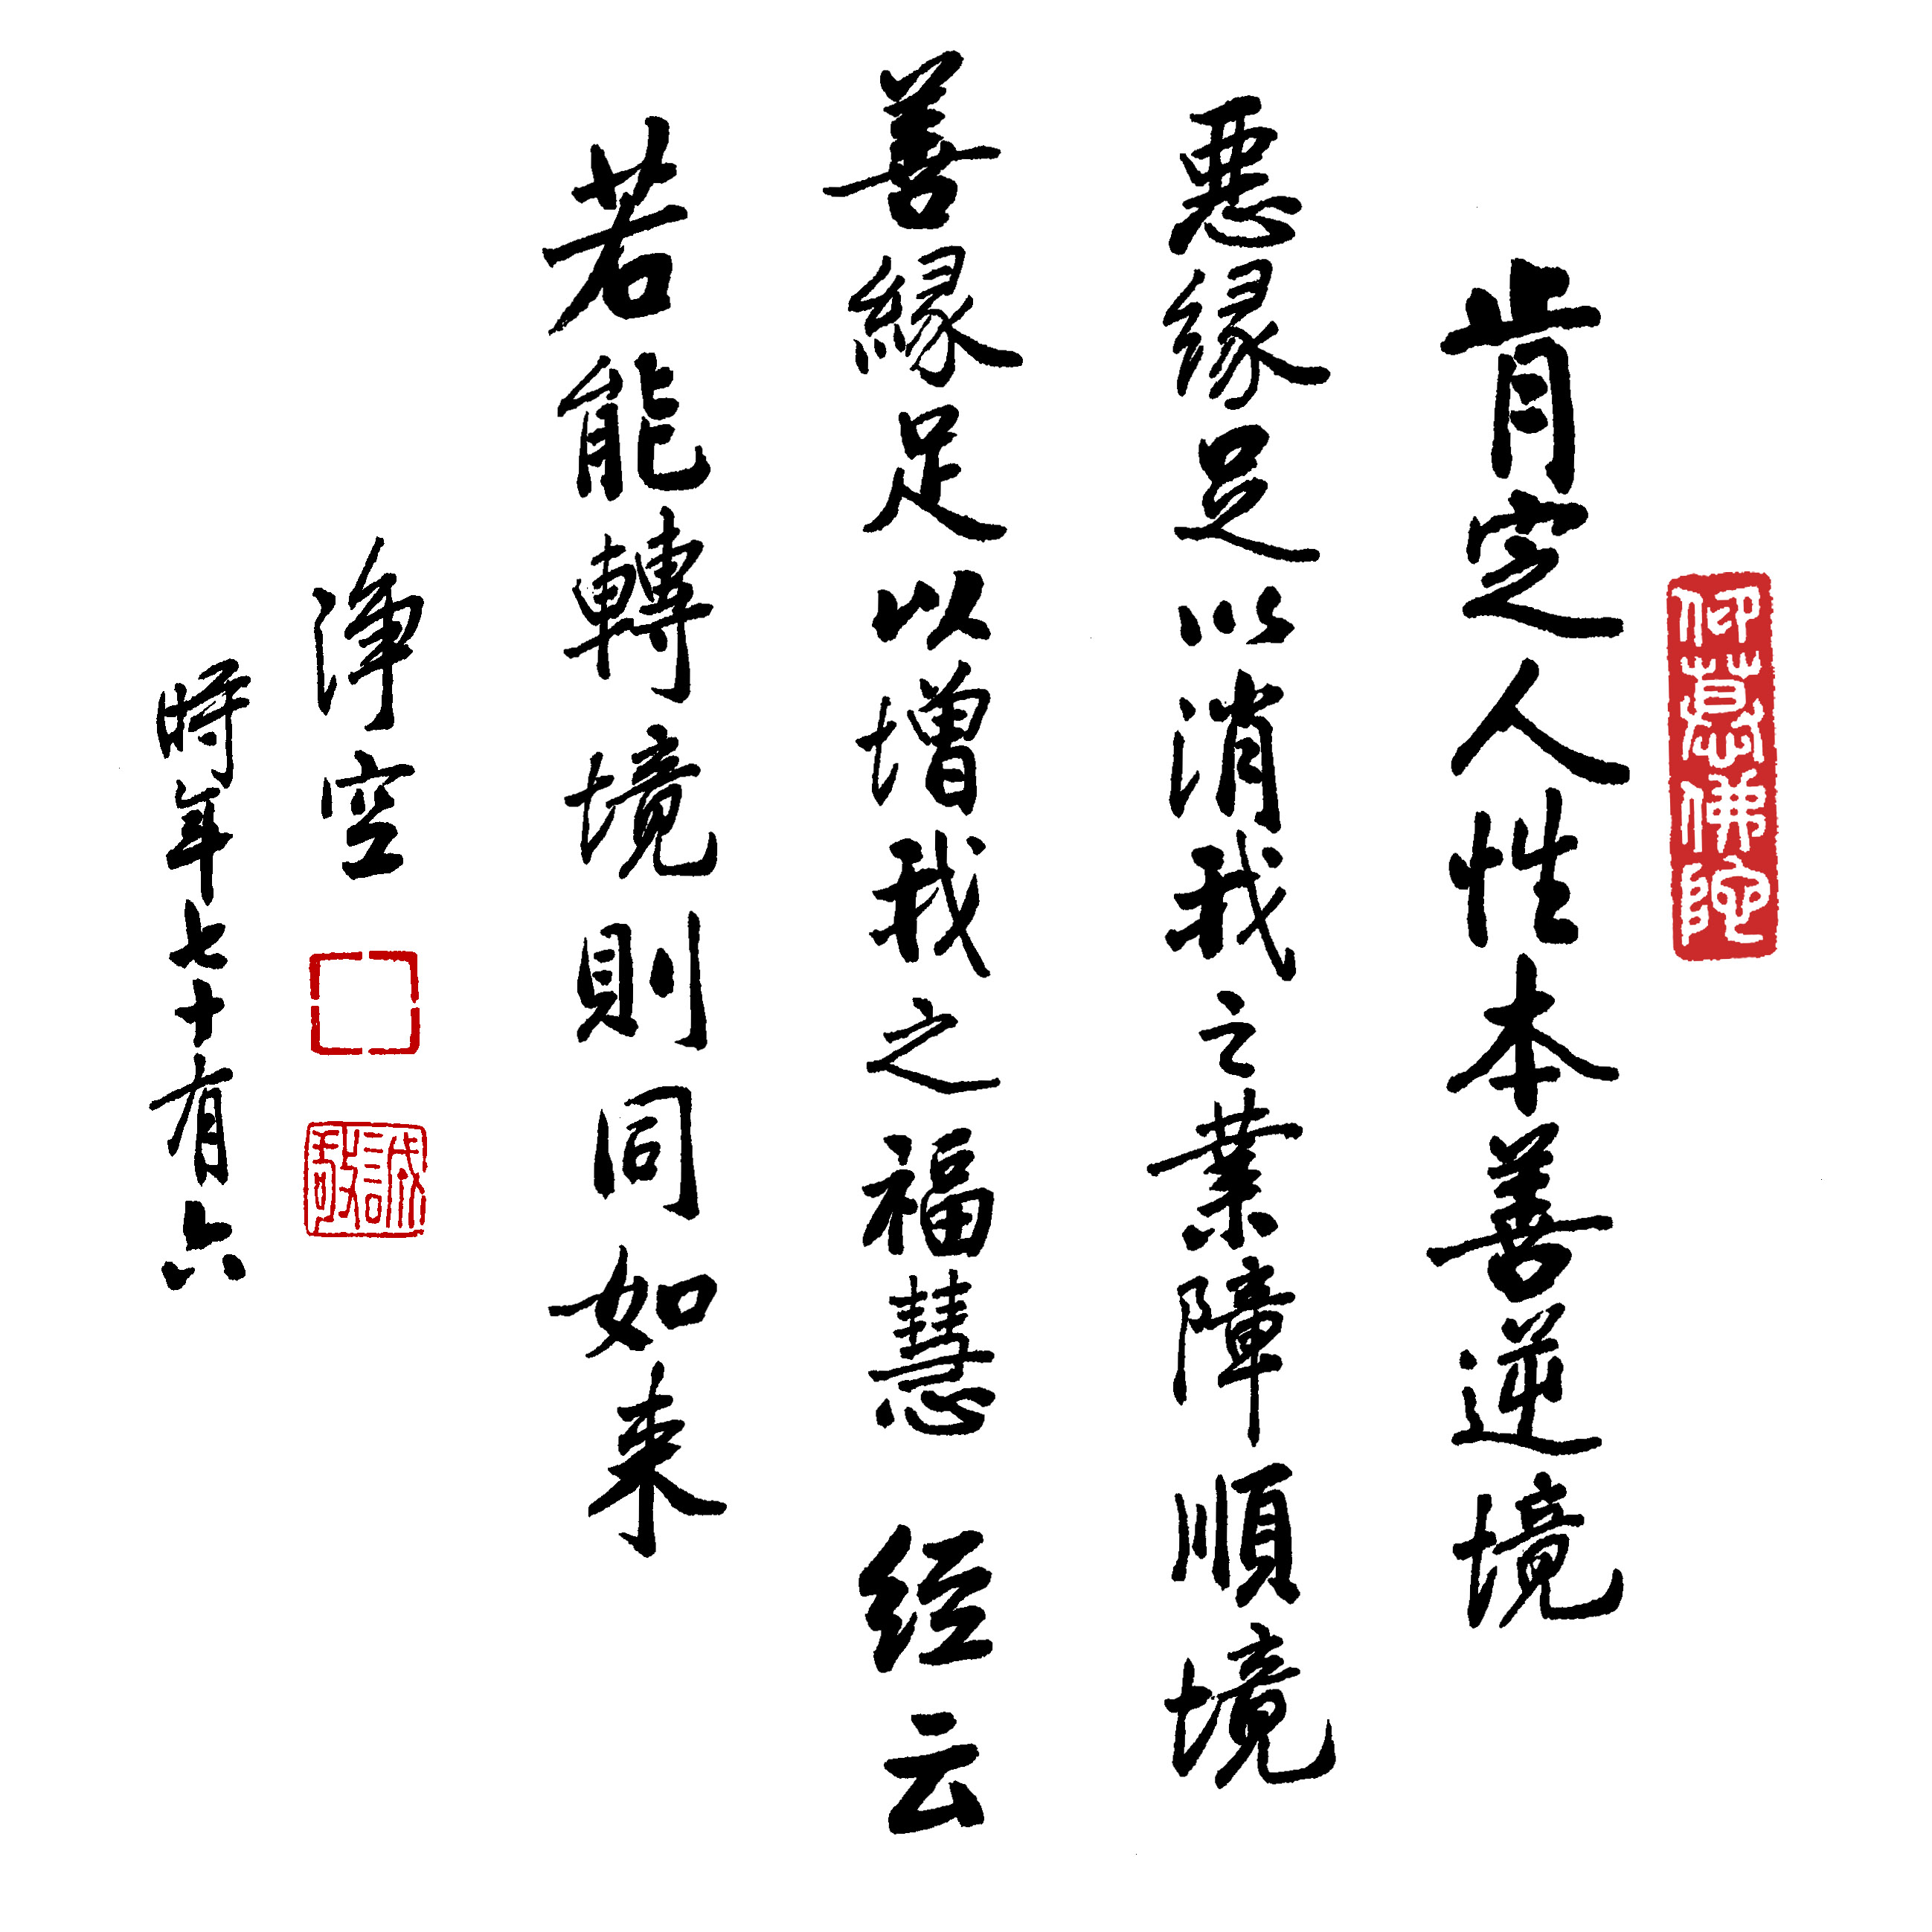 肯定人性本善逆境
惡緣足以消我之業障順境
善緣足以增我之福慧 经云
若能轉境則同如来
淨空
時年七十有六